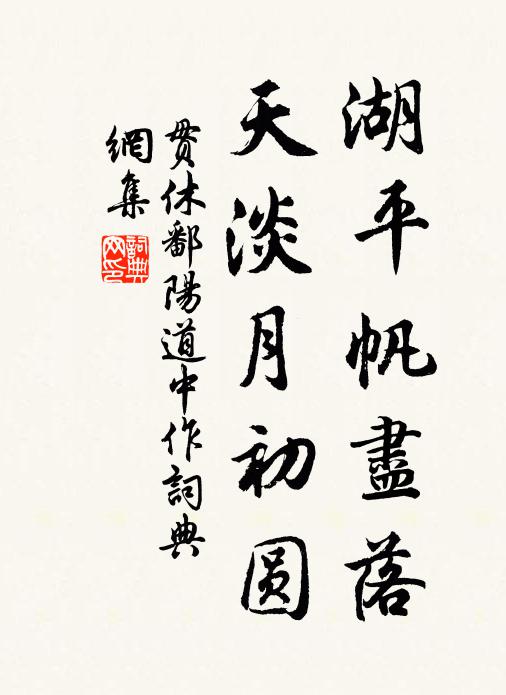 湖平帆盡落
天淡月初圆
贯休鄱陽道中作詞典
網集
詞典网印